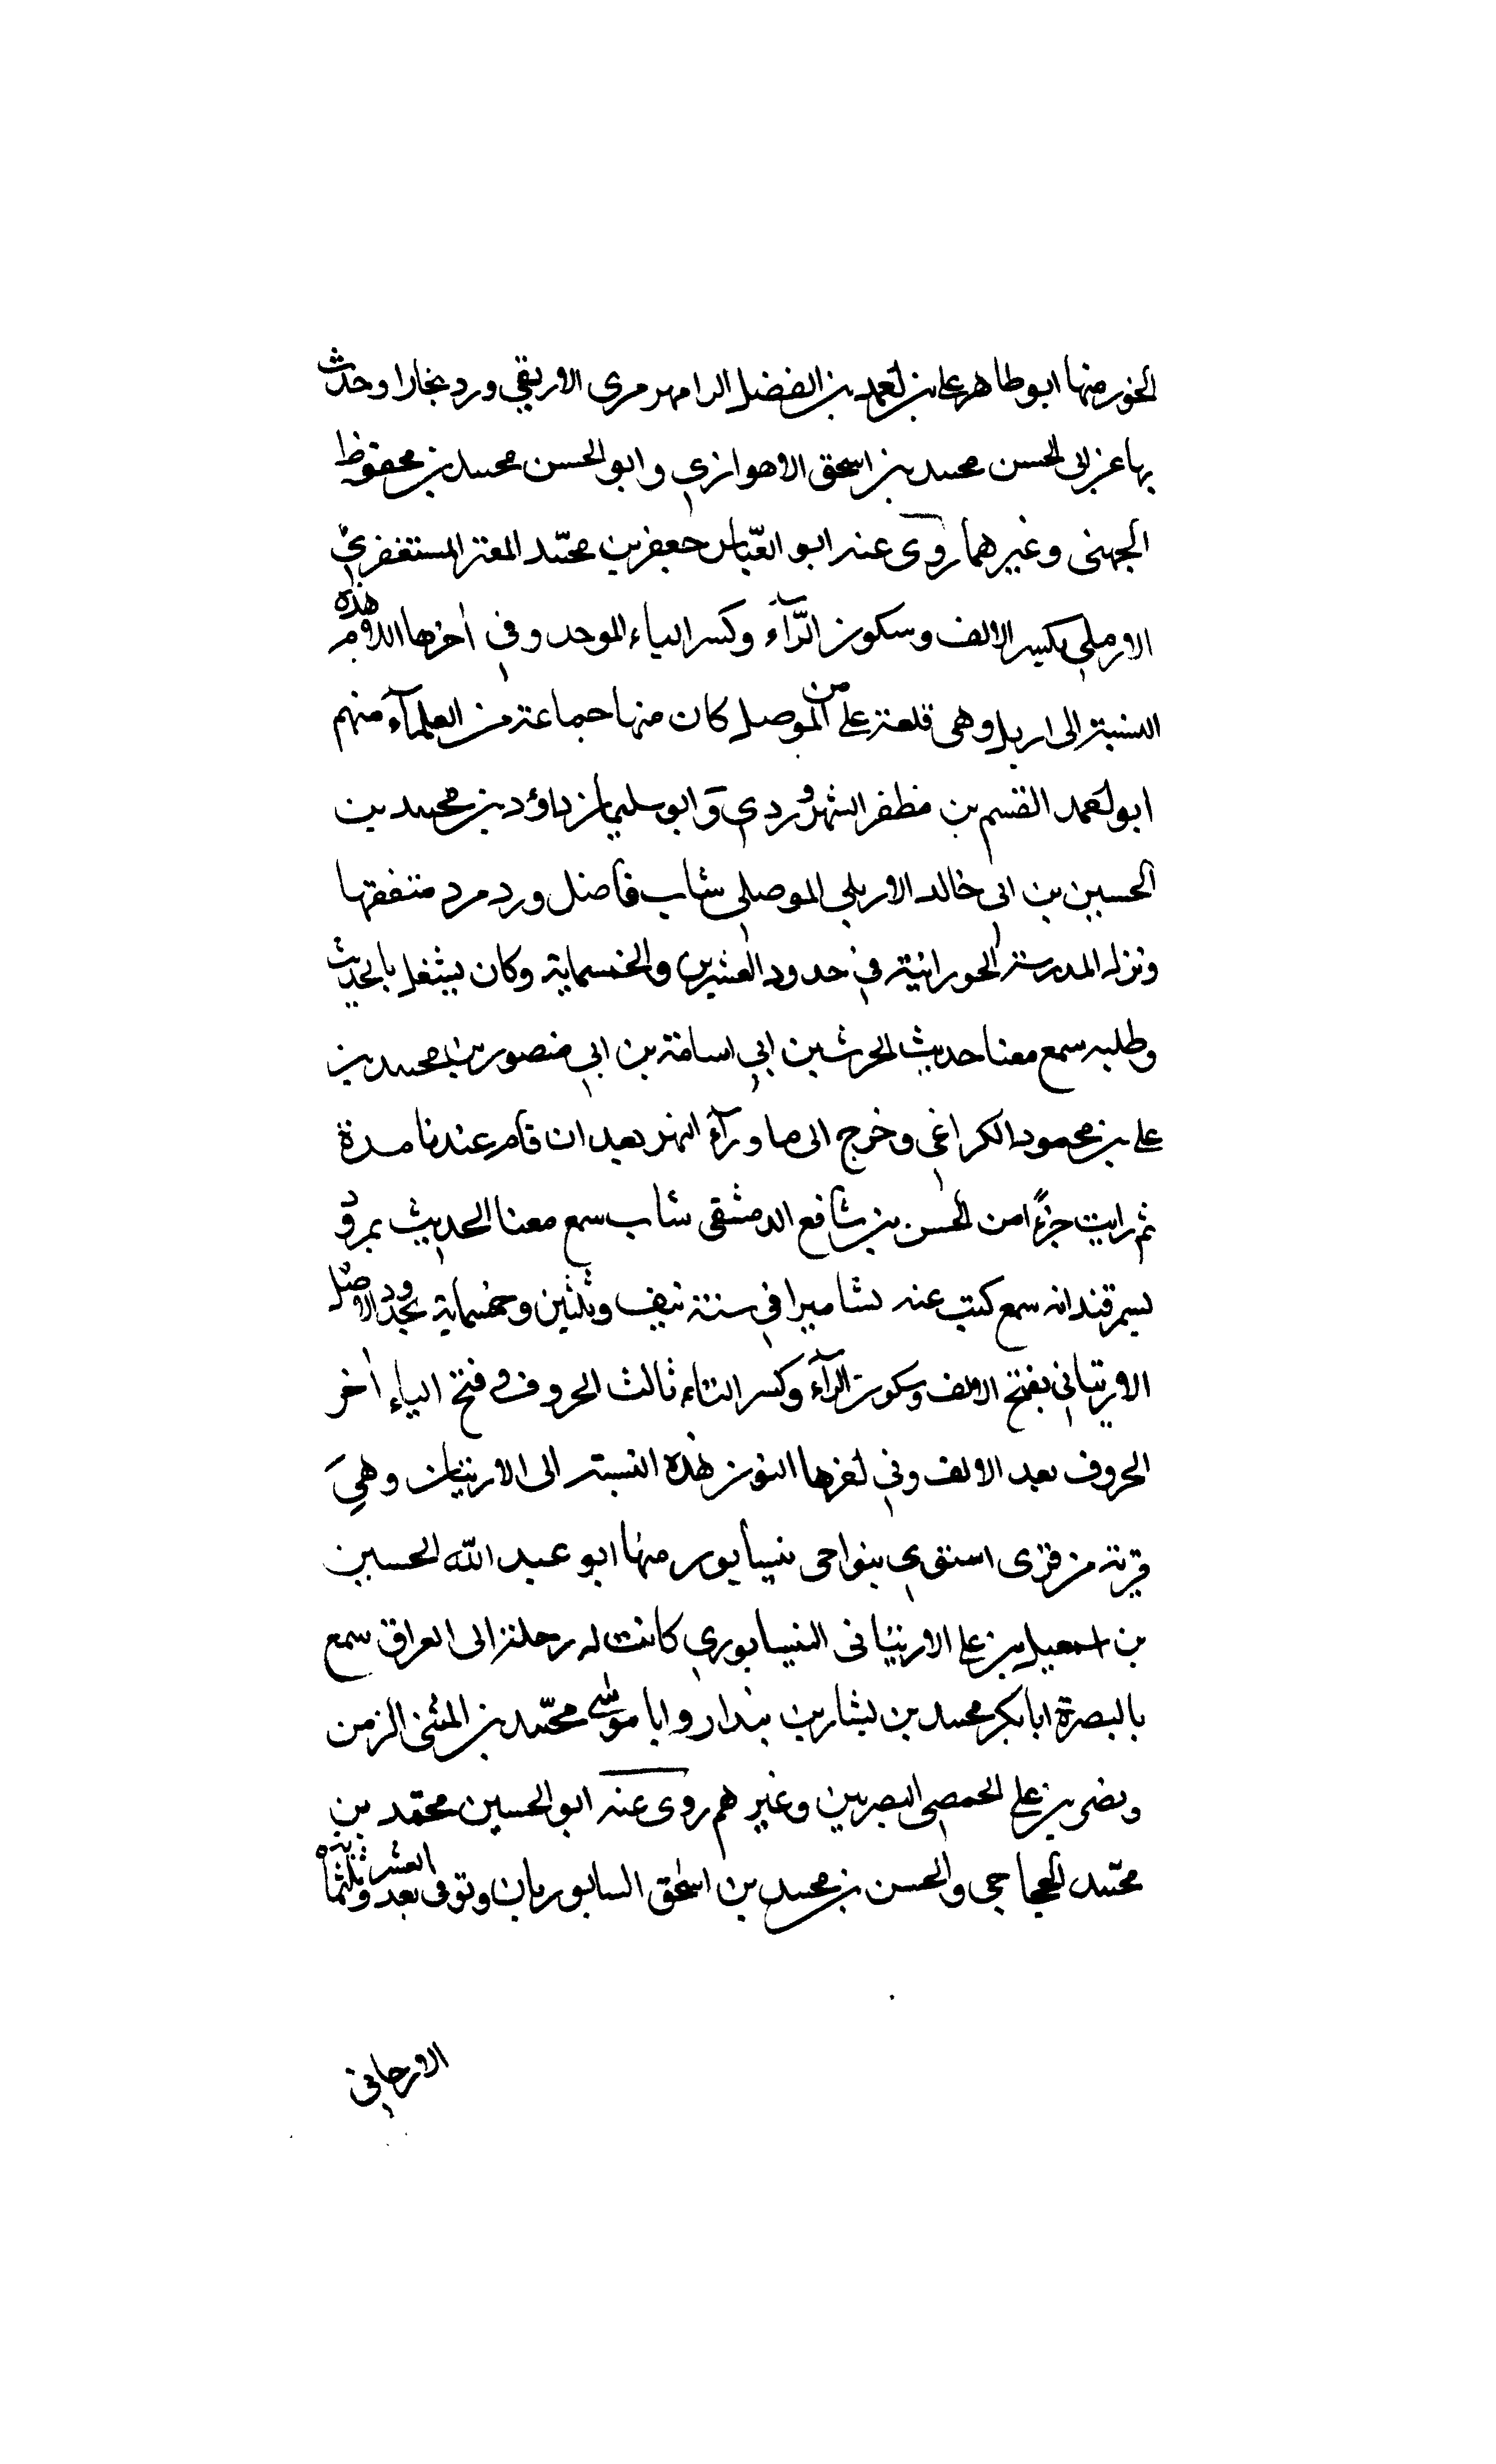 الخور منها ابو طاهر على بن احمد بن الفضل الرامهرمزى الاربقي ورد بخارا وحدث
بها عن ابى الحسن محمد بن اسحق الاهوازي وابو الحسن محمد بن محفوظ
الجهنى وغيرهما روى عنه ابو العباس جعفر بن محمد المعتز المستغفري
الارملي بكسر الالف وسكون الرآء وكسر الباء الموحد وفي اخرها اللام هذه
النسبة الى اربل وهى قلعة على من الموصل كان منها جماعة من العلمآء منهم
ابو احمد القسم بن مظفر الشهروردي وابو سليمان داؤد بن محمد بن
الحسين بن ابى خالد الاربلي الموصلي شاب فاضل ورد مرد متفقها
ونزل المدرسة الحورانية في حدود العشرين والخمسماية وكان يشغل بالحديث
وطلبه سمع معنا حديث الحرث بن ابي اسامة بن ابي منصور بن محمد بن
على بن محمود الكراغي وخرج الى ما ورآء النهر بعد ان قام عندنا مدة
ثم رايت جزءًا من الحسن بن شافع الدمشقى شاب سمع معنا الحديث بمرو و
بسمرقند انه سمع كتب عنه بشاميرا في سنة نيف وثلثين وخمسماية بحدود الاصل
الارتياني بفتح الالف وسكون الرآء وكسر التاء ثالث الحروف وفتح الياء اخر
الحروف بعد الالف وفي اخرها النون هذه النسبة الى الارتيان وهي
قرية من قرى استوي بنواحى نيسابور منها ابو عبد الله الحسين
بن اسمعيل بن على الارتيانى النيسابوري كانت له رحلة الى العراق سمع
بالبصرة ابا بكر محمد بن بشار بن بندار وابا موسى محمد بن المثنى الزمن
ونصر بن على الحمصي البصريين وغيرهم روى عنه ابو الحسين محمد بن
محمد الحجاجى والحسن بن محمد بن اسحق السابوريان وتوفى بعد العشر وثلثماية
الارجاني